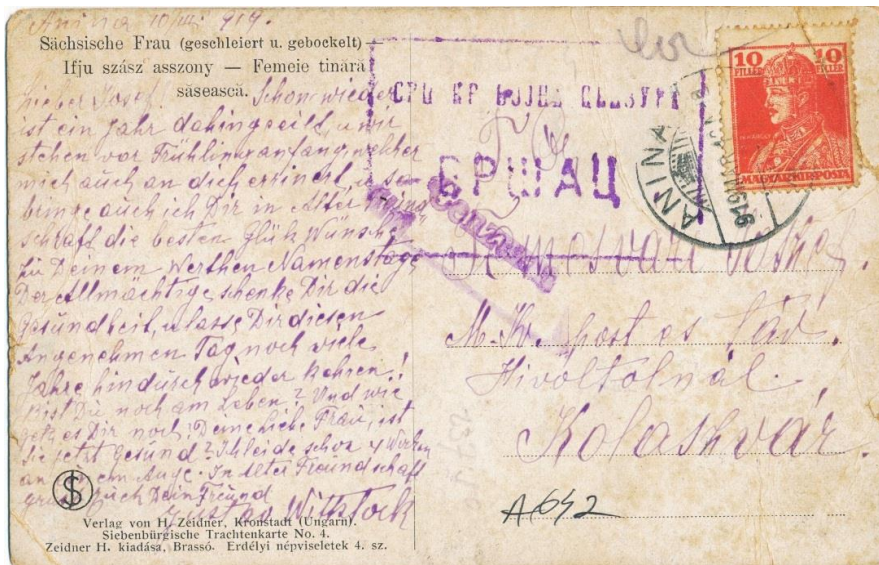 Anina 10/III. 919.
Sächsische Frau (geschleiert u. gebockelt) —
Ifju szász asszony — Femeie tinără
săsească.
Lieber Josef. Schon wieder
ist ein Jahr dahingeeilt, u. wir
stehen vor Frühlingsanfang, welcher
mich auch an dich erinnert, u. so
bringe auch ich Dir in Alter
schaft die besten Glük Wünsche
Zu Deinem Werthen Namenstage
Der Allmächtige schenke Dir die
Gesundheit, u. lasse Dir diesen
Angenehmen Tag noch viele
Jahre hindurch wieder kehren!
Bist Du noch am Leben? Und wie
geht es Dir noch? Deine liebe Frau, ist
Sie jetzt gesund? Ich leide schon 4 Wochen
an einem Auge. In alter Freundschaft
grüßt Euch Dein Freund
Wittstock
S
Verlag von H. Zeidner, Kronstadt (Ungarn).
Siebenbürgische Trachtenkarte No. 4.
Zeidner H. kiadása, Brassó. Erdélyi népviseletek 4. sz.
ВРШАЦ
10 FILLÉR
10 FILLÉR
MAGYAR KIR. POSTA
ANINA
919 MAR
József.
M. Kir. post es táv.
Hivoltolnál.
Kolasvár.
A642